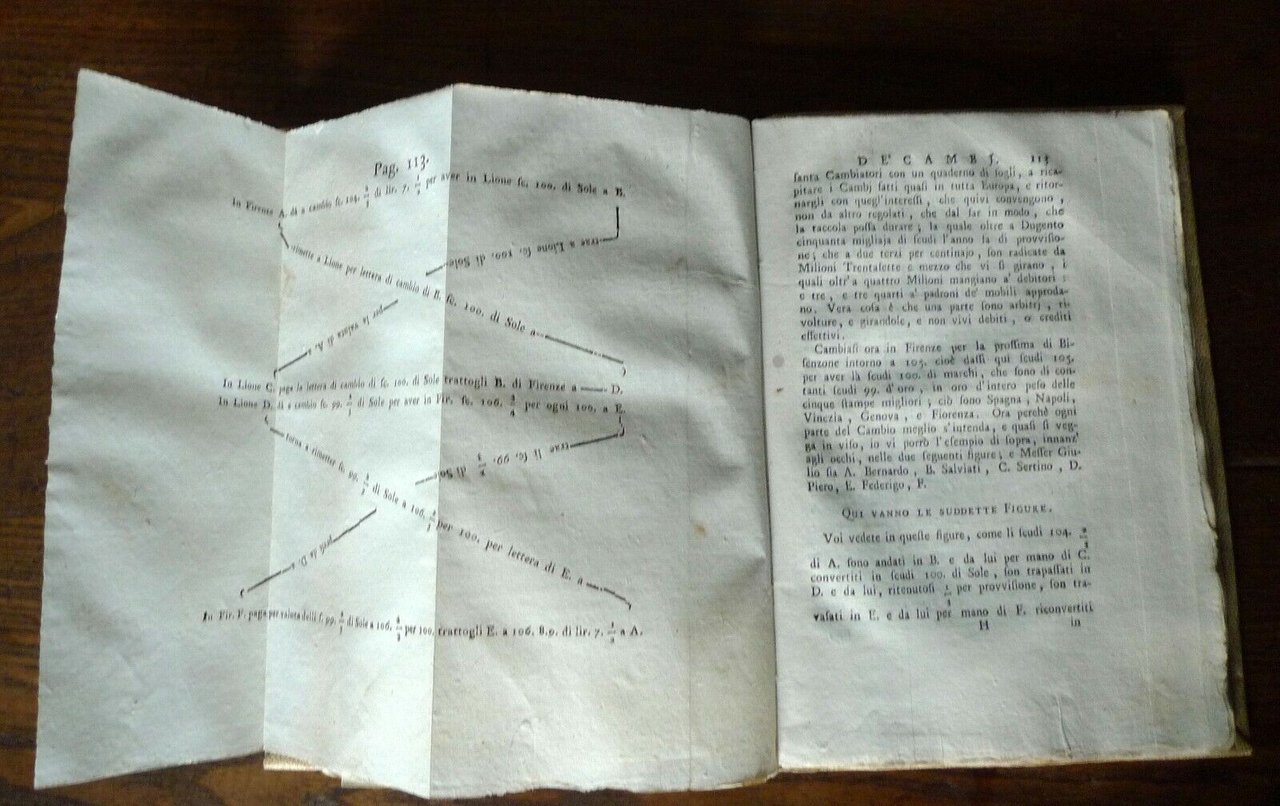 Pag. 113.
In Firenze A. dà a cambio ſc. 104. di lir. 7. 1/2 per aver in Lione ſc. 100. di Sole a B.
rimette a Lione per lettera di cambio di B. ſc. 100. di Sole a D.
trae a Lione ſc. 100. di Sole
per la valuta di A. a
In Lione C. paga la lettera di cambio di ſc. 100. di Sole trattogli B. di Firenze a D.
In Lione D. dà a cambio ſc. 99. di Sole per aver in Fir. ſc. 106. 3/4 per ogni 100. a E.
torna a rimetter ſc. 99. di Sole a 106. per 100. per lettera di E. a
trae li ſc. 99. di So
In Fir. F. paga per valuta delli ſ. 99. di Sole a 106. per 100. trattogli E. a 106. 8. 9. di lir. 7. 1/2 a A.
DE' CAMBJ. 113
ſanta Cambiatori con un quaderno di fogli, a rica-
pitare i Cambj fatti quaſi in tutta Europa, e ritor-
nargli con quegl'intereſſi, che quivi convengono,
non da altro regolati, che dal far in modo, che
la taccola poſſa durare; la quale oltre a Dugento
cinquanta migliaja di ſcudi l'anno fa di provviſio-
ne; che a due terzi per centinajo, ſon radicate da
Milioni Trentaſette e mezzo che vi ſi girano, i
quali oltr'a quattro Milioni mangiano a' debitori:
e tre, e tre quarti a' padroni de' mobili approda-
no. Vera coſa è che una parte ſono arbitrj, ri-
volture, e girandole, e non vivi debiti, o crediti
effettivi.
Cambiaſi ora in Firenze per la proſſima di Bi-
ſenzone intorno a 105. cioè daſſi qui ſcudi 105.
per aver là ſcudi 100. di marchi, che ſono di con-
tanti ſcudi 99. d'oro, in oro d'intero peſo delle
cinque ſtampe migliori; ciò ſono Spagna, Napoli,
Vinezia, Genova, e Fiorenza. Ora perchè ogni
parte del Cambio meglio s'intenda, e quaſi ſi veg-
ga in viſo, io vi porrò l'eſempio di ſopra, innanz'
agli occhi, nelle due ſeguenti figure; e Meſſer Giu-
lio ſia A. Bernardo, B. Salviati, C. Sertino, D.
Piero, E. Federigo, F.
QUI VANNO LE SUDDETTE FIGURE.
Voi vedete in queſte figure, come li ſcudi 104.
di A. ſono andati in B. e da lui per mano di C.
convertiti in ſcudi 100. di Sole, ſon trapaſſati in
D. e da lui, ritenutoſi per provviſione, ſon tra-
vaſati in E. e da lui per mano di F. riconvertiti
H in